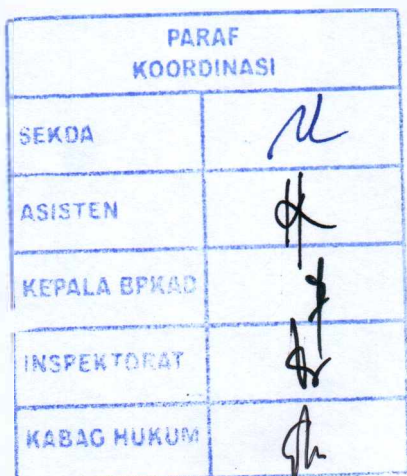 PARAF
KOORDINASI
SEKDA
ASISTEN
KEPALA BPKAD
INSPEKTORAT
KABAG HUKUM